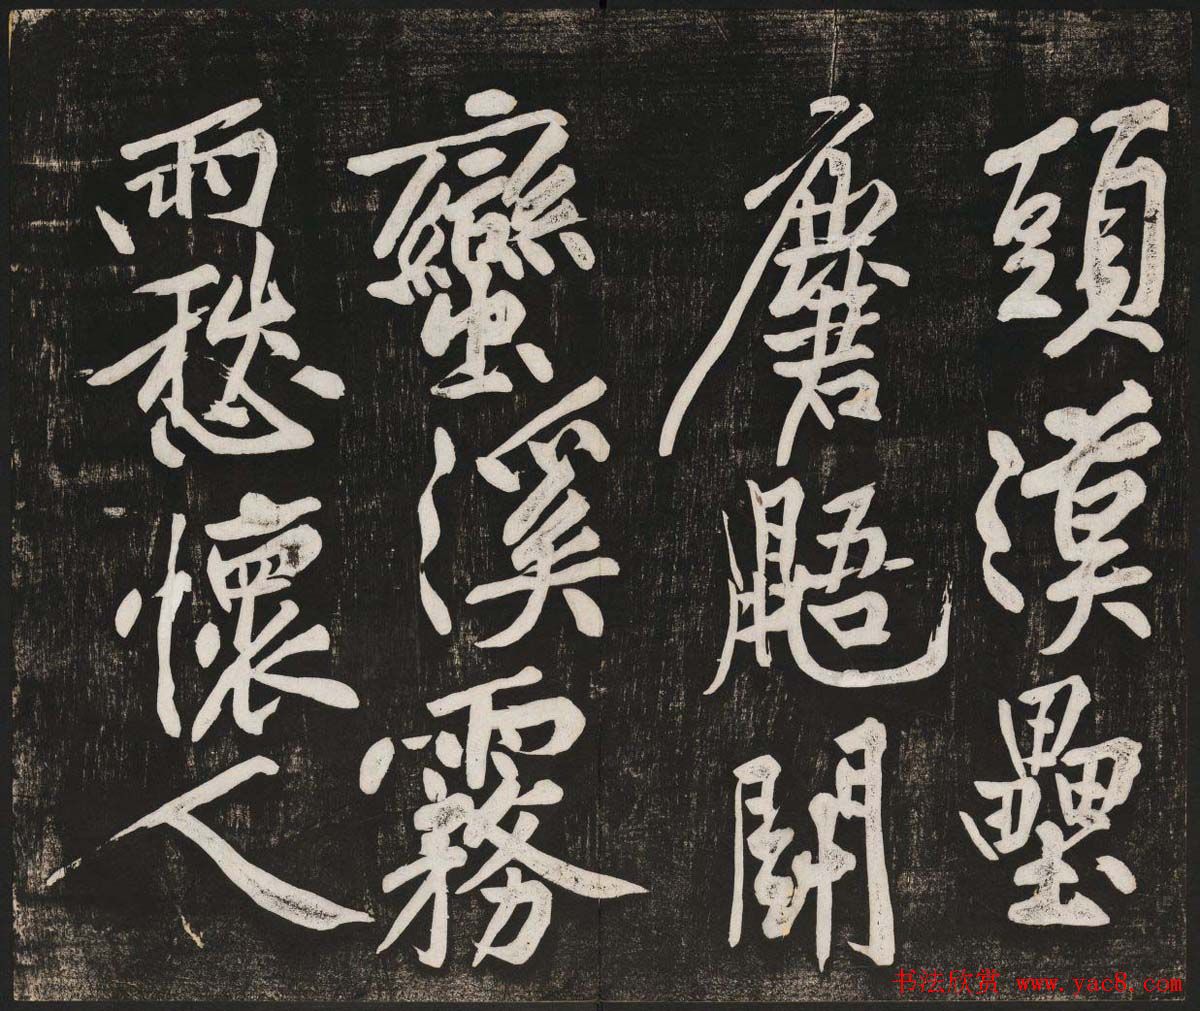 頭漢壘
麏鼯鬪
蠻溪霧
雨愁懷人
书法欣赏 www.yac8.com